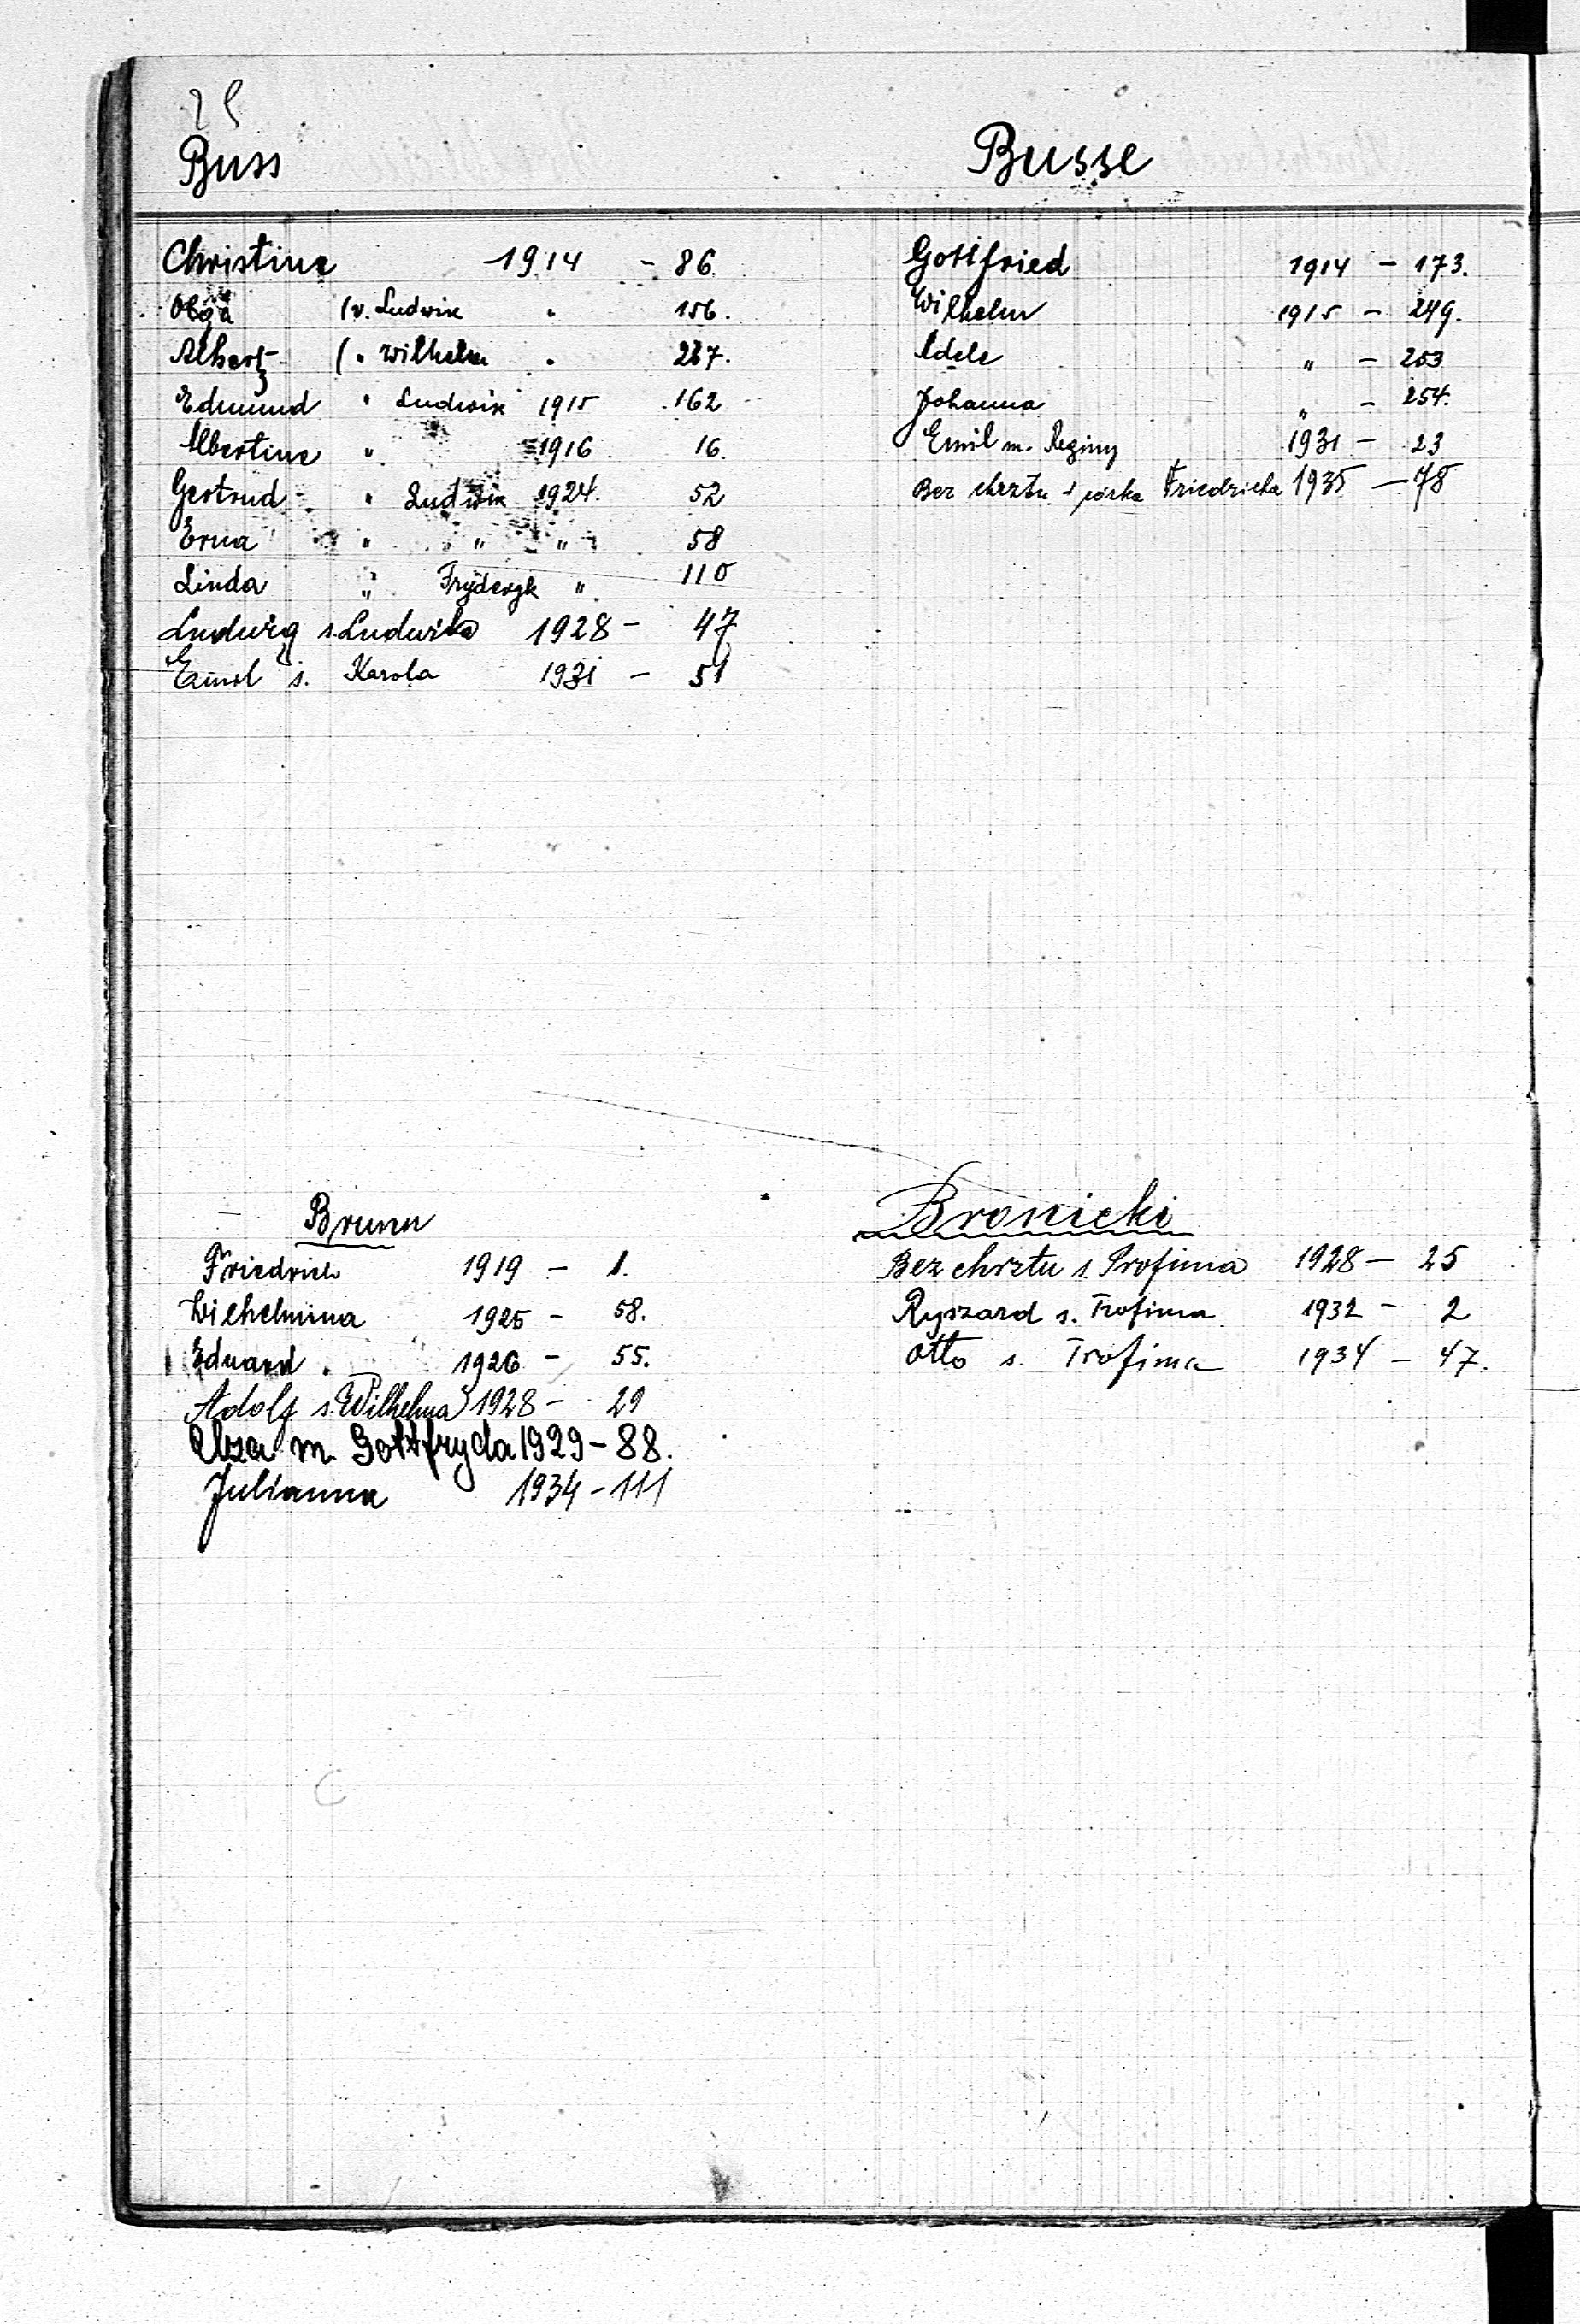 Buss
Christine 1914 - 86.
Olga (v. Ludwik " 156.
Albert (" Wilhelm " 267.
Edmund " Ludwik 1915 162
Albertine " 1916 16.
Gertrud " Ludwik 1924. 52
Erna " " " 58
Linda " Fryderyk " 110
Ludwig s. Ludwika 1928 - 47
Emil s. Karola 1931 - 51
Busse
Gottfried 1914 - 173.
Wilhelm 1915 - 249.
Adele " - 253
Johanna " - 254.
Emil m. Reginy 1931 - 23
Bez chrztu córka Friedricha 1935 - 78
Brunn
Friedrich 1919 - 1.
Wilhelmina 1925 - 58.
Eduard . 1926 - 55.
Adolf s. Wilhelma 1928 - 29
Elza m. Gottfryda 1929 - 88.
Julianna 1934 - 111
Bronicki
Bez chrztu s. Trofima 1928 - 25
Ryszard s. Trofima 1932 - 2
Otto s. Trofima 1934 - 47.